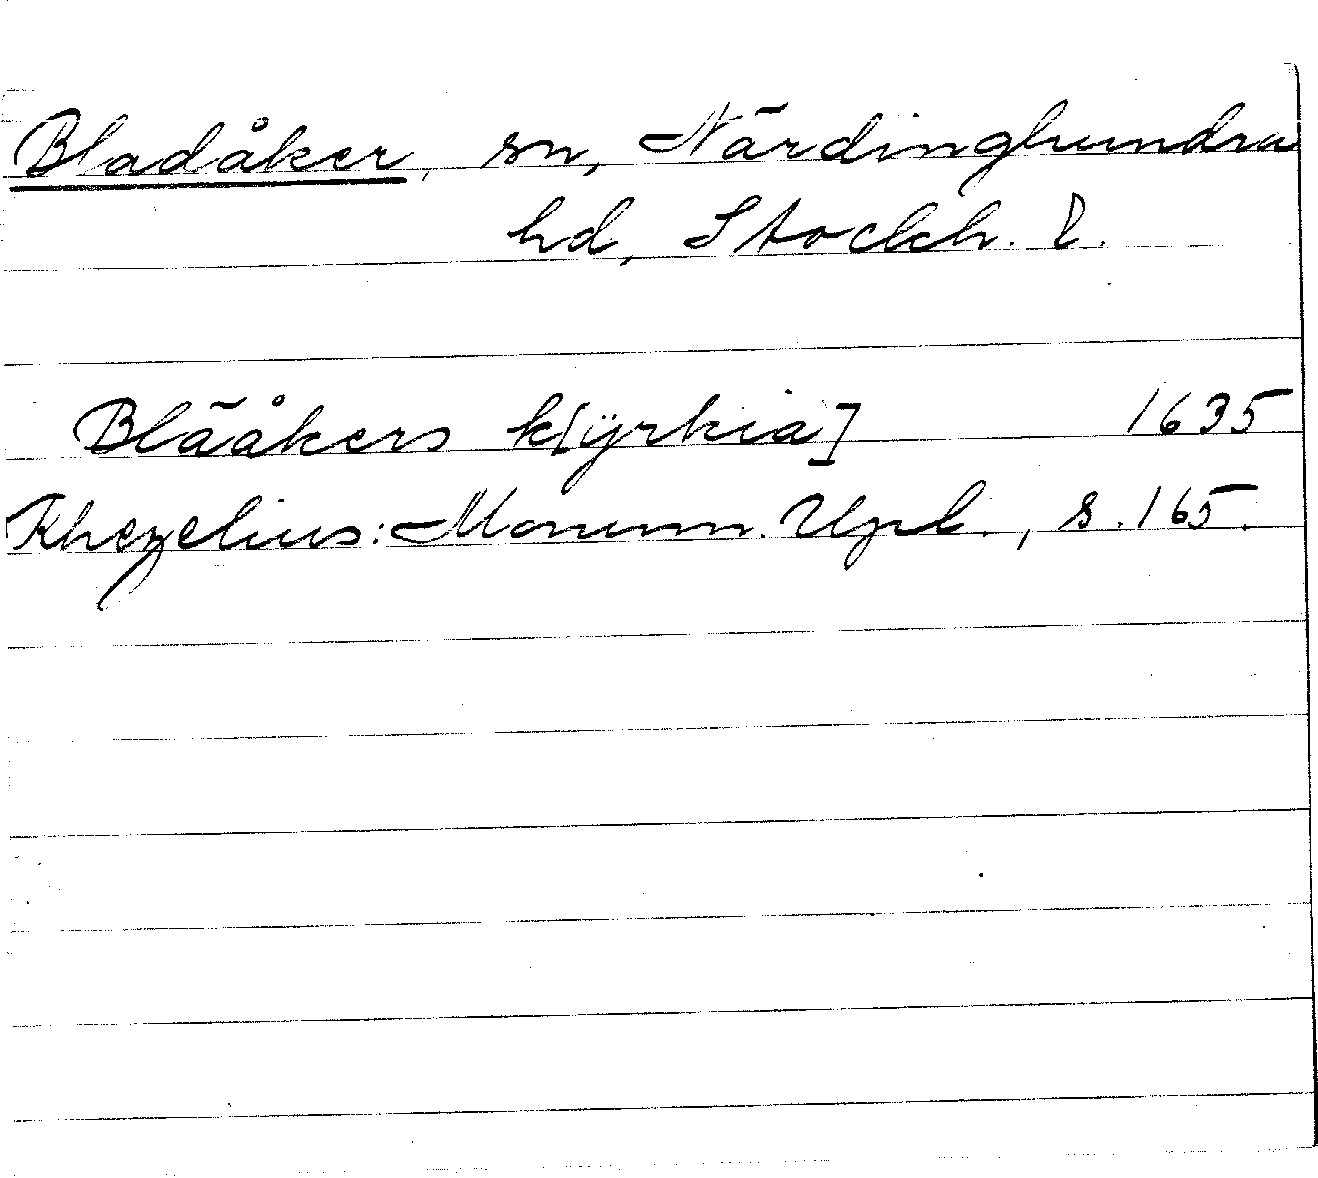 Bladåker, sn, Närdinghundra
hd, Stockh. l.
Blãåkers k[ÿrkia] 1635
Rhezelius: Monum. Upl., s. 165.